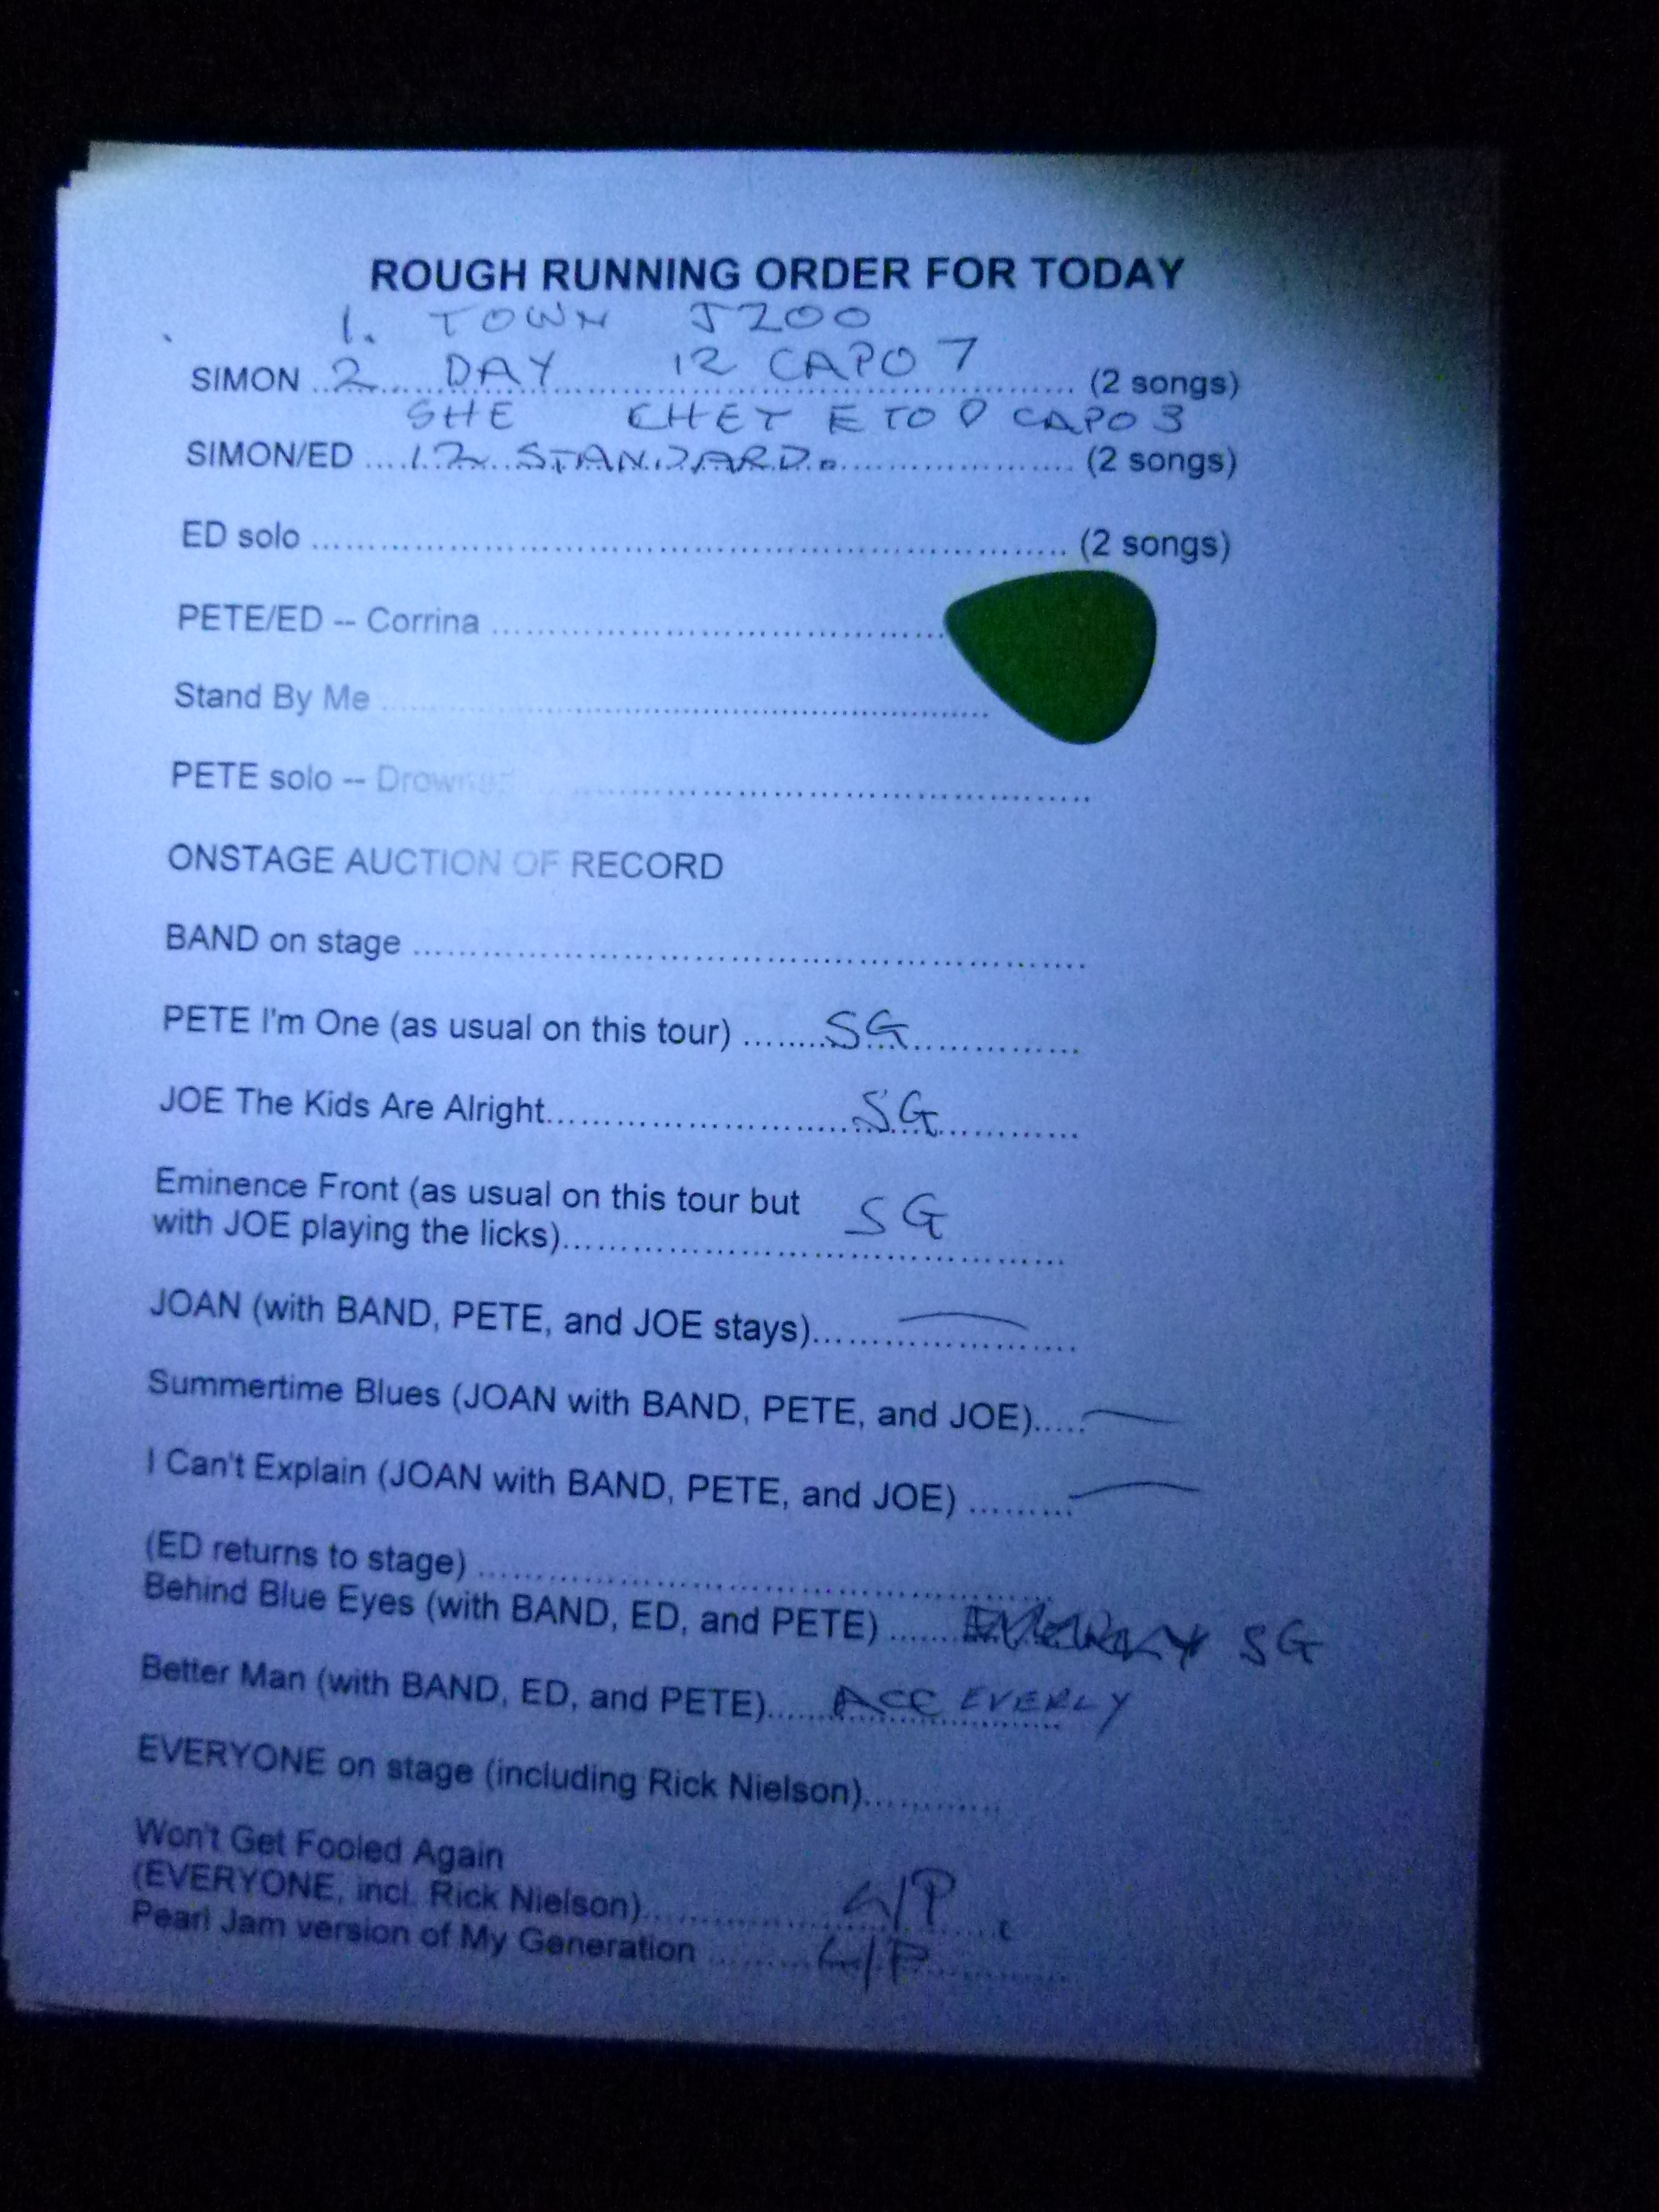 ROUGH RUNNING ORDER FOR TODAY
1. TOWN J200
SIMON 2 DAY 12 CAPO 7 (2 songs)
SHE CHET E TO D CAPO 3
SIMON/ED 12 STANDARD. (2 songs)
ED solo (2 songs)
PETE/ED -- Corrina
Stand By Me
PETE solo -- Drowned
ONSTAGE AUCTION OF RECORD
BAND on stage
PETE I'm One (as usual on this tour) SG
JOE The Kids Are Alright SG
Eminence Front (as usual on this tour but
with JOE playing the licks) SG
JOAN (with BAND, PETE, and JOE stays)
Summertime Blues (JOAN with BAND, PETE, and JOE)
I Can't Explain (JOAN with BAND, PETE, and JOE)
(ED returns to stage)
Behind Blue Eyes (with BAND, ED, and PETE) SG
Better Man (with BAND, ED, and PETE) ACC EVERLY
EVERYONE on stage (including Rick Nielson)
Won't Get Fooled Again
(EVERYONE, incl. Rick Nielson)
Pearl Jam version of My Generation